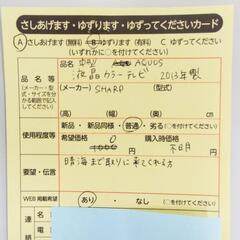 さしあげます・ゆずります・ゆずってくださいカード
A さしあげます(無料) B ゆずります(有料) C ゆずってください
(いずれかに○を付けてください)
品名等
(メーカー・型式・サイズを分かる範囲で記入してください)
中型 AQUOS
液晶カラーテレビ 2013年製
(メーカー) SHARP (型式)
使用程度等
新品・新品同様・普通・劣る(○を付けてください)
希望価格 0 (高) (入時期)
円 不明 年 月
要望・伝言
晴海まで取りに来てくれる方
WEB掲載希望 あり・なし(○を付けてください)
連
電